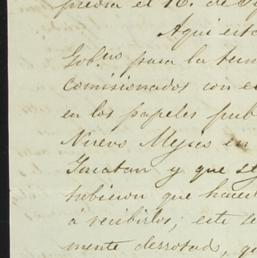 piedra el 16. de
Aqui esta
Gob.no para la ter
comisionados con e
en los papeles pub
Nuevo Mejico en
Yucatan y que se
hubieron que hacer
á recibirlos; este se
mente derrotad, q